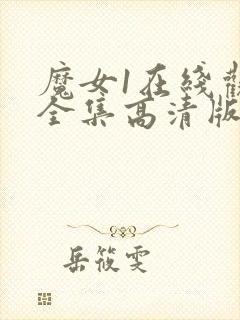 魔女1在线观
全集高清版
岳筱雯